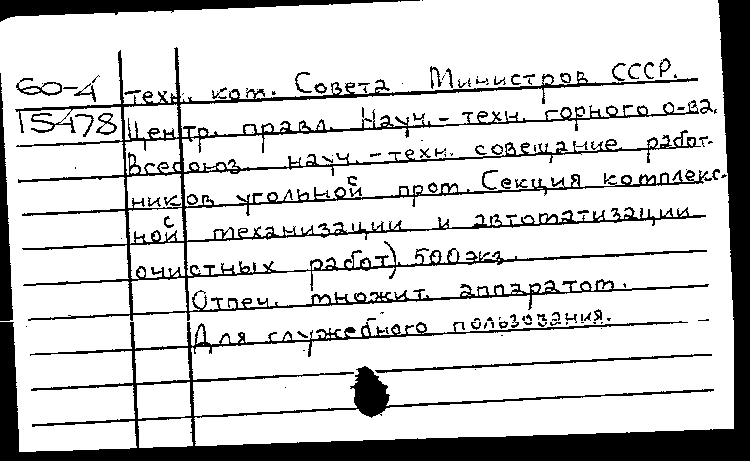 60-4 техн. ком. Совета Министров СССР.
15478 Центр. правл. Науч.-техн. горного о-ва.
Всесоюз. науч.-техн. совещание работ-
ников угольной пром. Секция комплекс-
ной механизации и автоматизации
очистных работ). 500 экз.
Отпеч. множит. аппаратом.
Для служебного пользования.